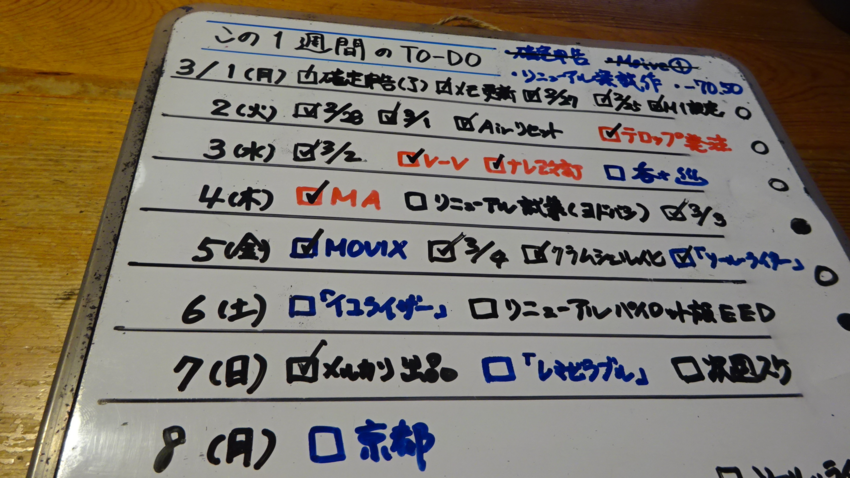 この1週間のTO-DO ・確定申告
・リニューアル案試作
3/1(月) ☑確定申告(J) ☑メモ更新 ☑2/27 ☑2/25 ☑M1設定
2(火) ☑2/28 ☑3/1 ☑Airリセット ☑テロップ発注
3(水) ☑3/2 ☑V-V ☑ナレ改訂 □
4(木) ☑MA □リニューアル試案(ヨドバシ) ☑3/3
5(金) ☑MOVIX ☑3/4 ☑クラムシェルイヒ ☑「ソールライダー」
6(土) □「イコライザー」 □リニューアルパイロット版EED
7(日) ☑メルカリ出品 □「レキピラブル」 □次回スケ
8(月) □京都